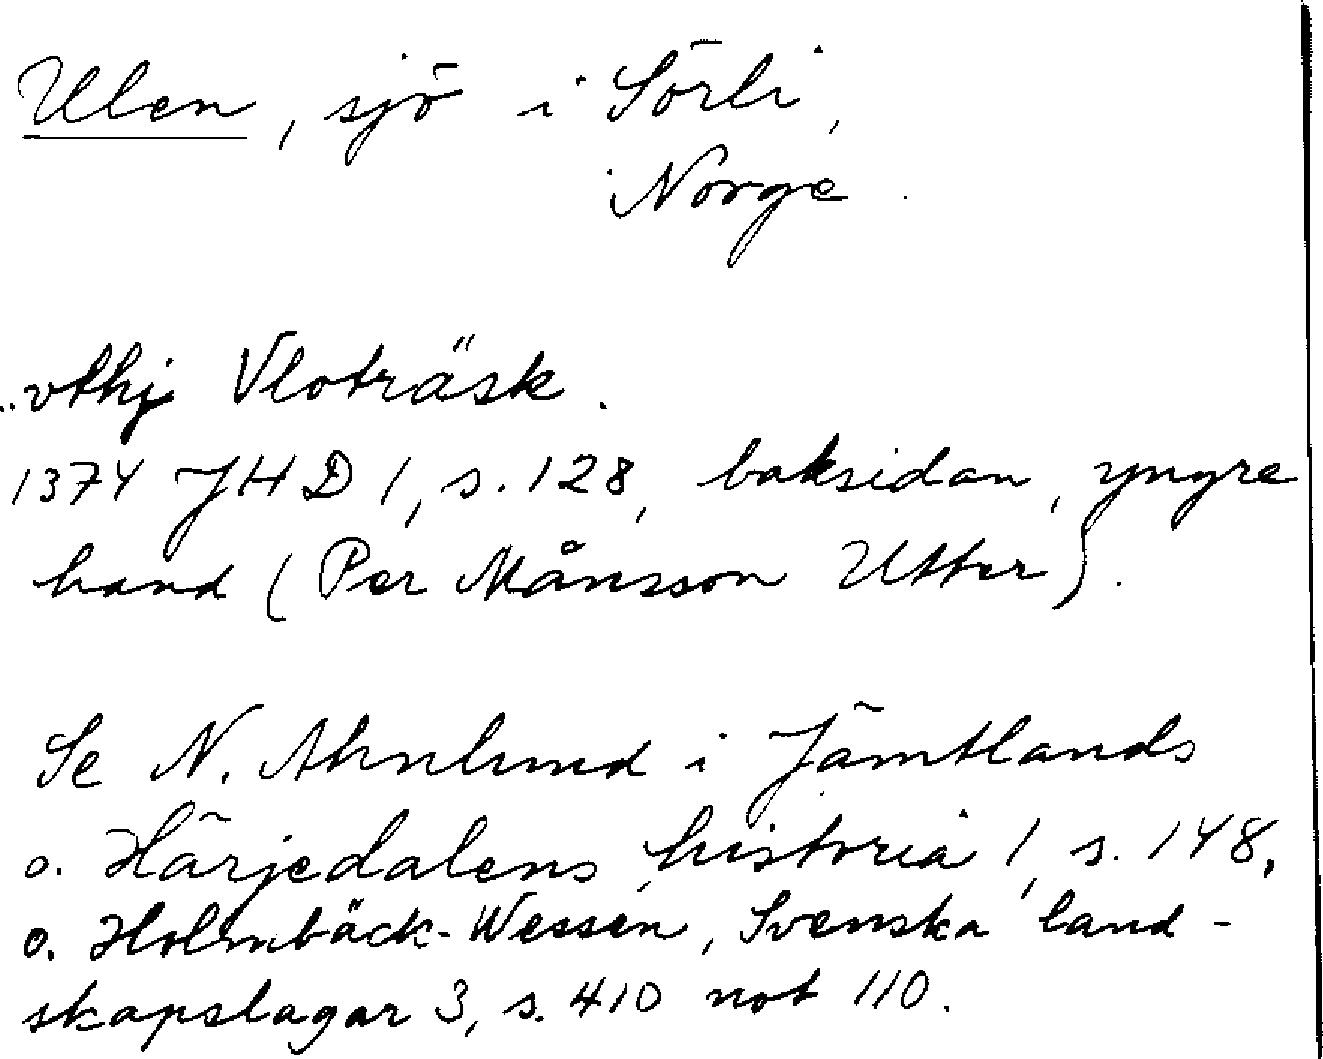 Ulen, sjö i Sörli,
Norge.
..vthj Vloträsk.
1374 JHD 1, s. 128, baksidan, yngre
hand (Per Månsson Utter).
Se N. Ahnlund i Jämtlands
o. Härjedalens historia 1, s. 148,
o. Holmbäck-Wessén, Svenska land-
skapslagar 3, s. 410 not 110.